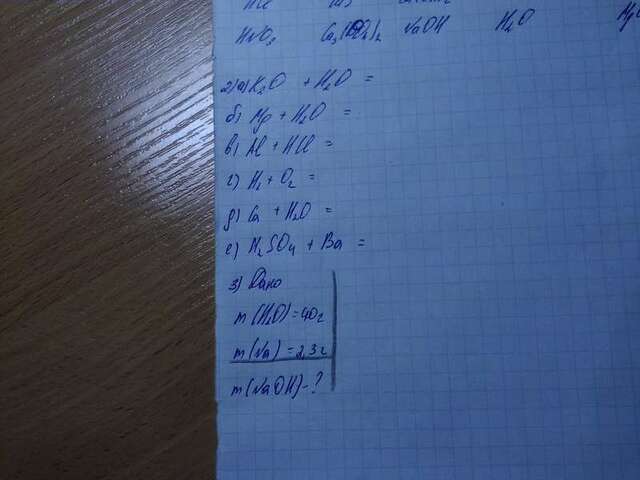 HNO₃ Ca₃(PO₄)₂ NaOH H₂O
2) а) K₂O + H₂O =
б) Mg + H₂O =
в) Al + HCl =
г) H₂ + O₂ =
д) Ca + H₂O =
е) H₂SO₄ + Ba =
3) Дано
m(H₂O) = 40г
m(Na) = 2,3г
m(NaOH) - ?